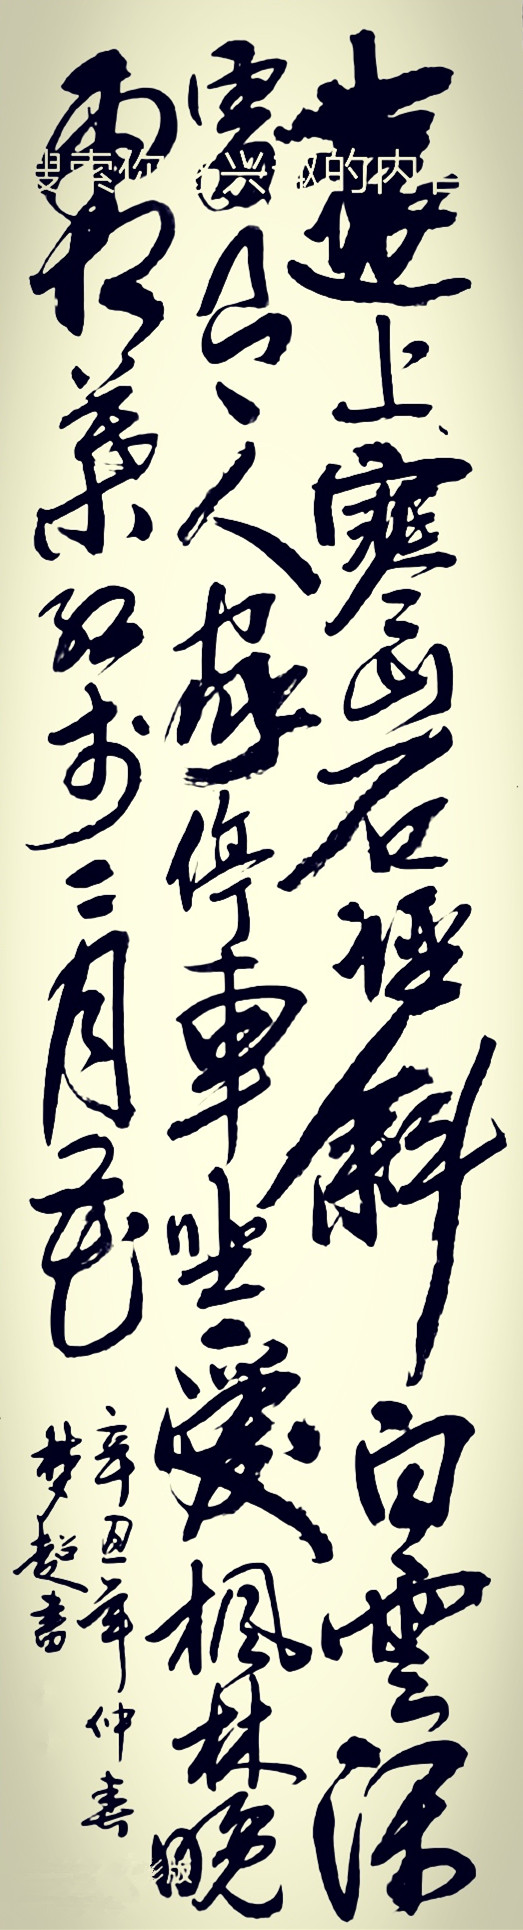 遠上寒山石徑斜白雲深
人家停車坐愛楓林晚
霜葉红於二月花
辛丑年仲春
梦超書
搜索你感兴趣的内容
影版